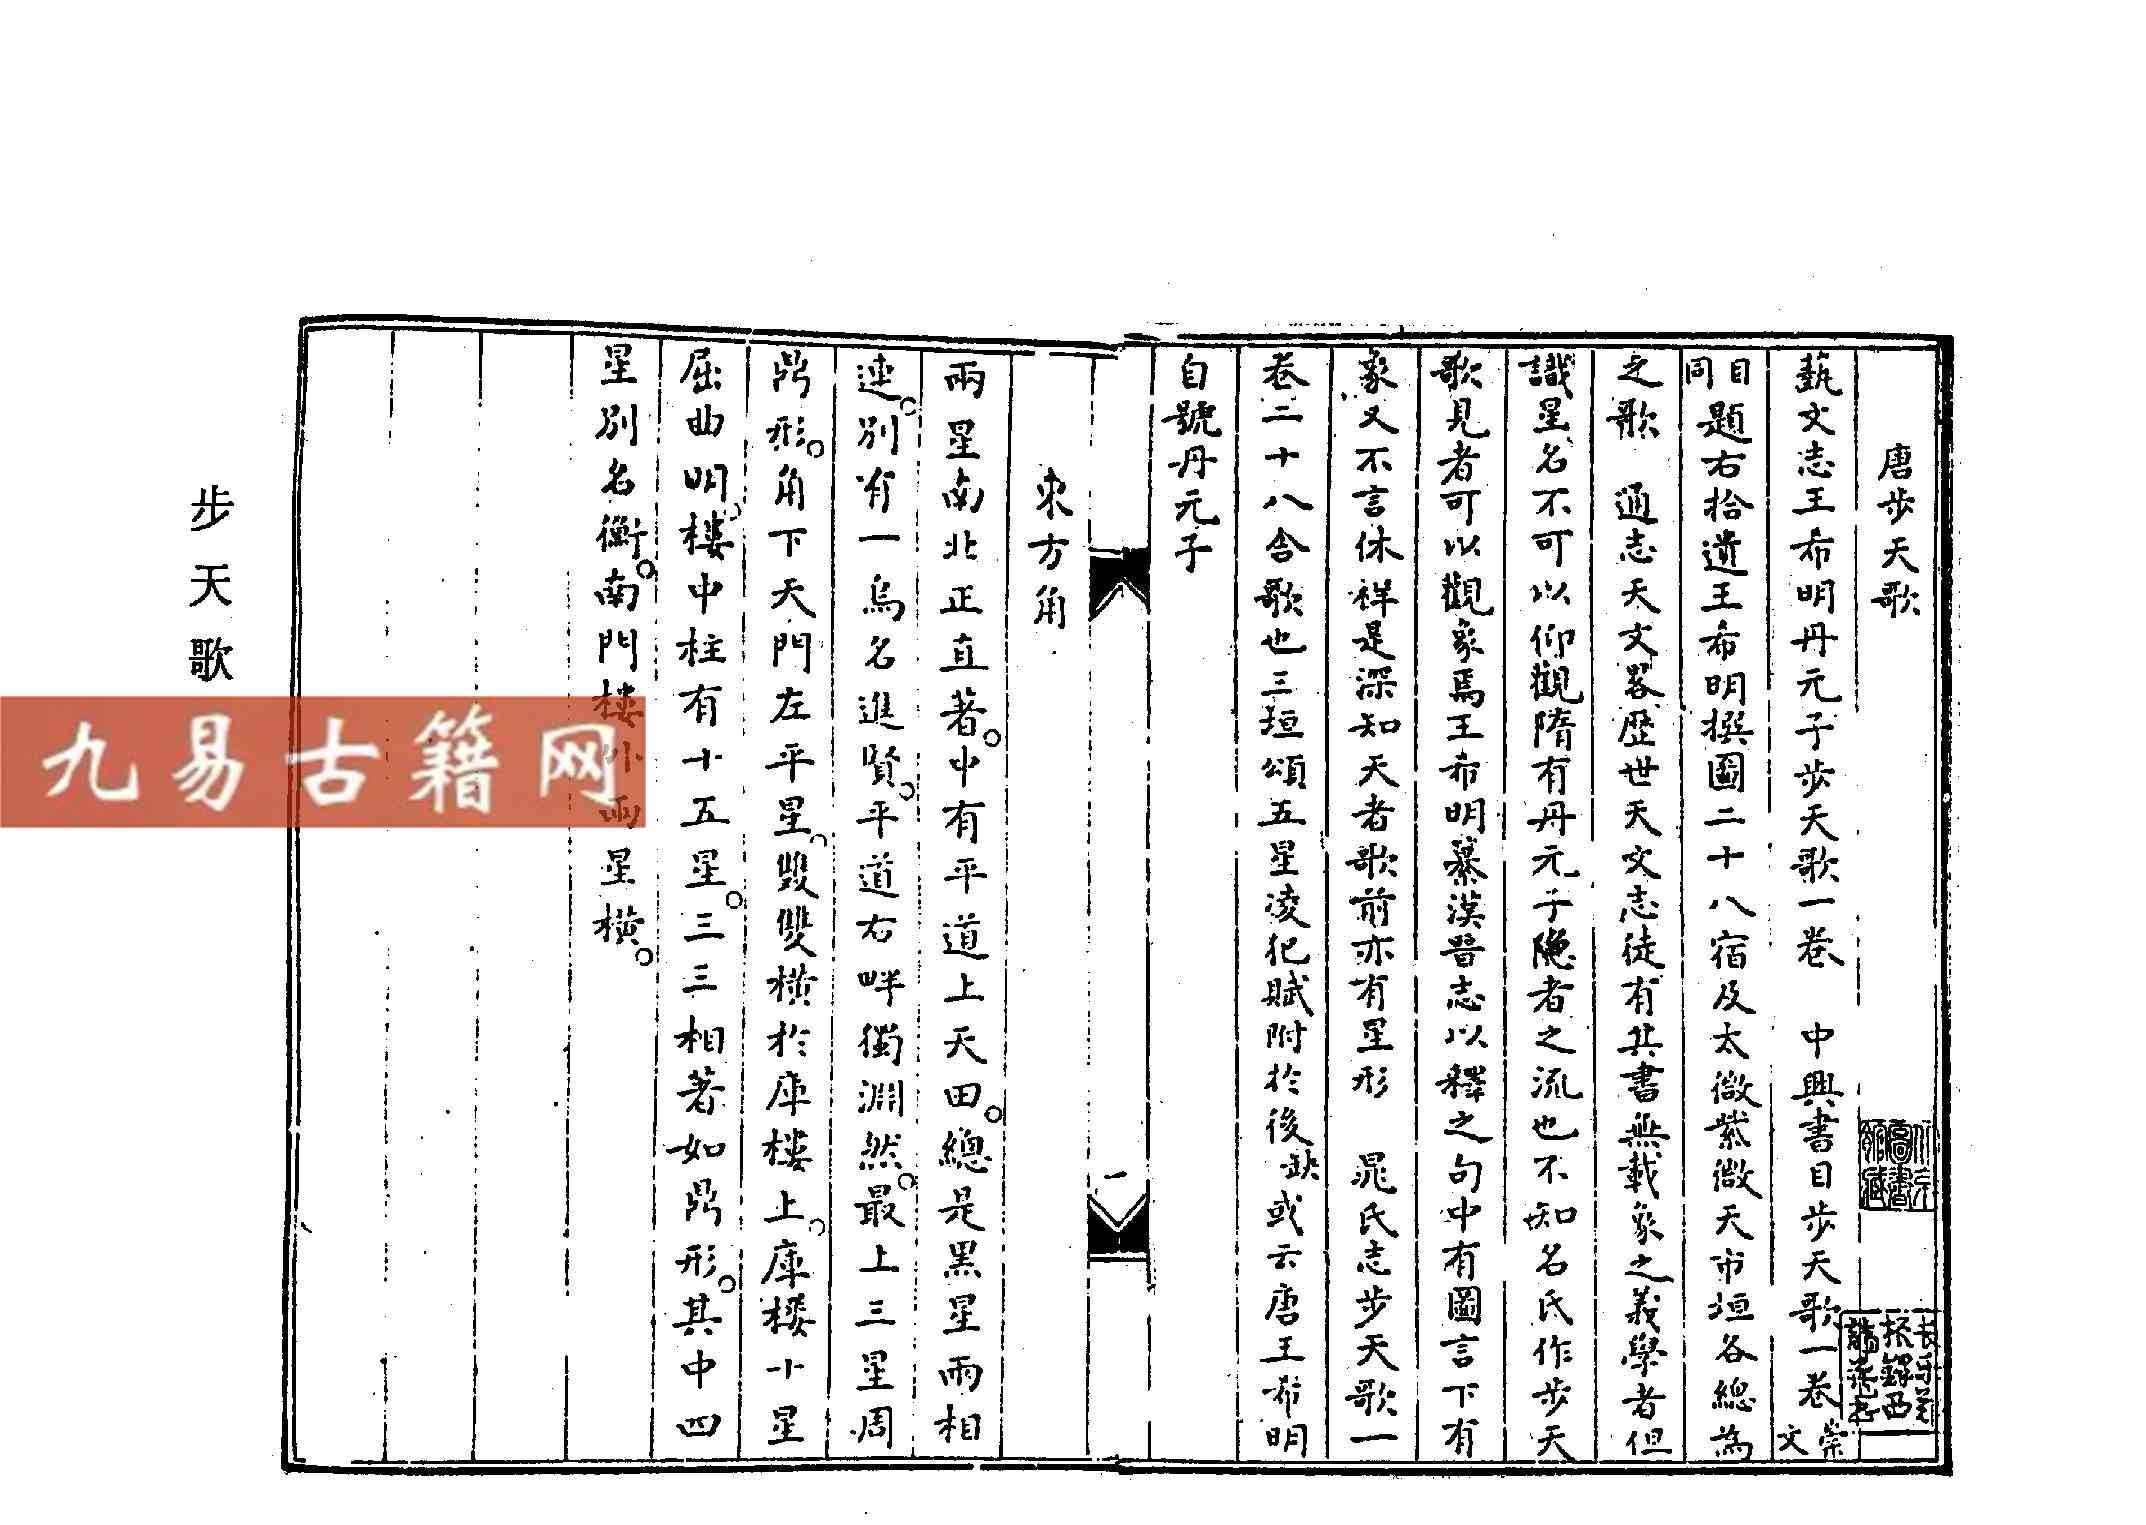 唐步天歌
藝文志王希明丹元子步天歌一卷　中興書目步天歌一卷崇文
目同題右拾遺王希明撰圖二十八宿及太微紫微天市垣各總為
之歌　通志天文畧歷世天文志徒有其書無載象之義學者但
識星名不可以仰觀隋有丹元子隱者之流也不知名氏作步天
歌見者可以觀象焉王希明纂漢晉志以釋之句中有圖言下有
象又不言休祥是深知天者歌前亦有星形　晁氏志步天歌一
卷二十八舍歌也三垣頌五星凌犯賦附於後缺或云唐王希明
自號丹元子
一
東方角
兩星南北正直著中有平道上天田總是黑星兩相
連別有一烏名進賢平道右畔獨淵然最上三星周
鼎形角下天門左平星雙雙橫於庫樓上庫樓十星
屈曲明樓中柱有十五星三三相著如鼎形其中四
星別名衡南門樓外兩星橫
步天歌
九易古籍网